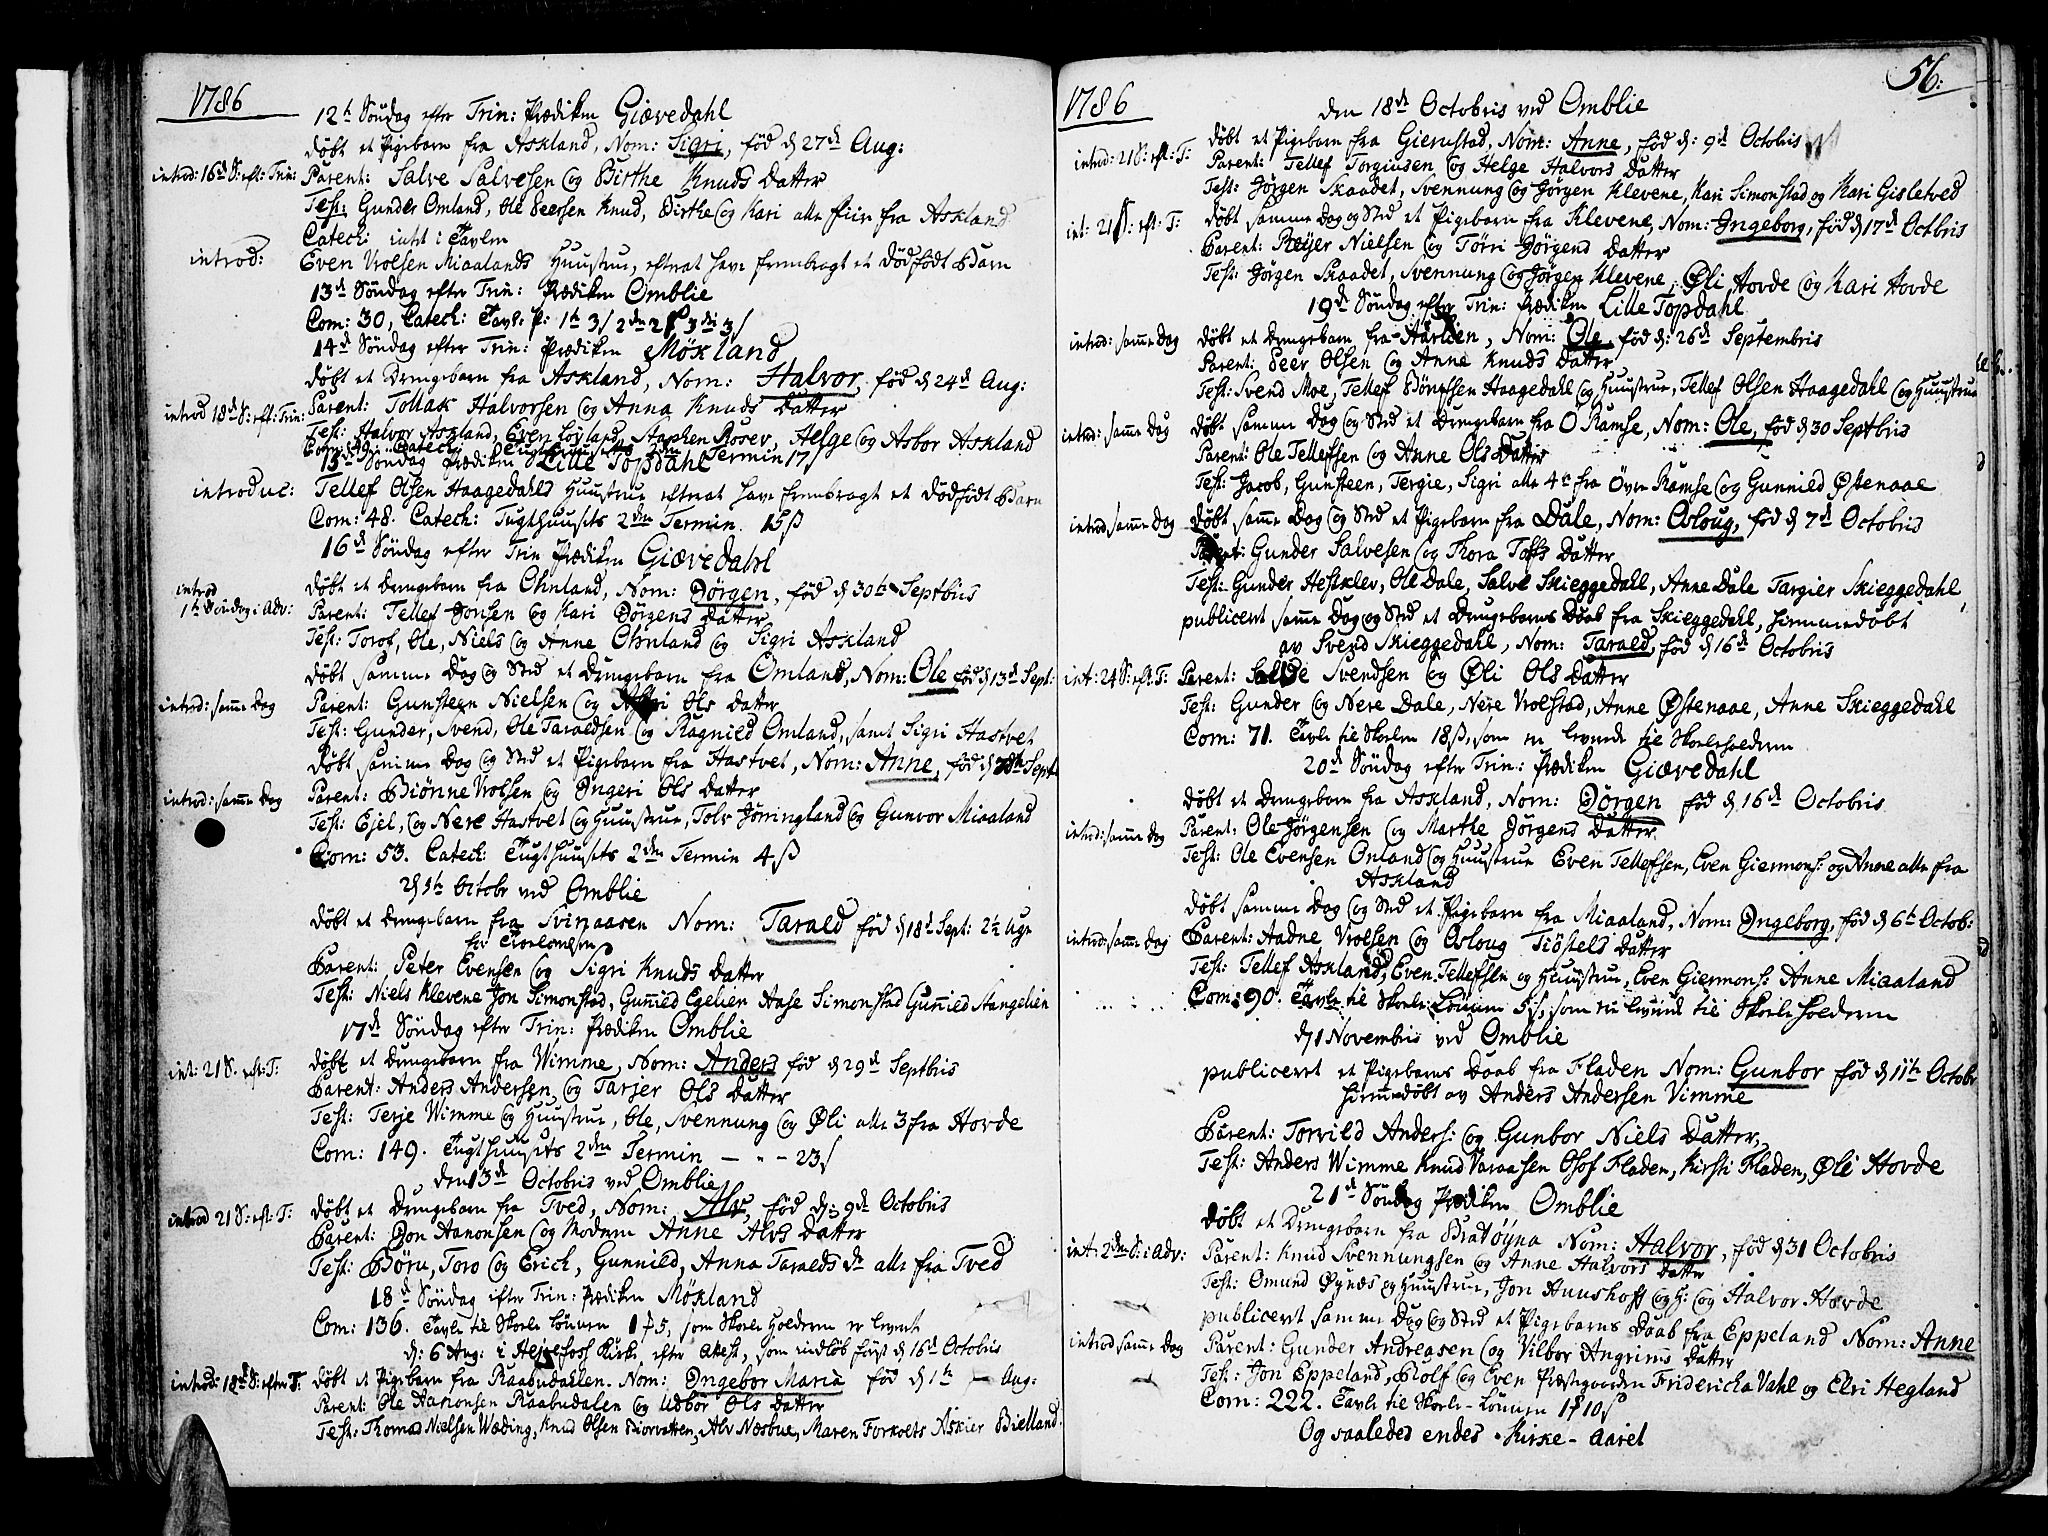 1786
12te Søndag efter Trin: Prædiken Giævedahl
døbt et Pigebarn fra Askland, Nom: Sigri, fød d 27de Aug:
introd: 16de S: eft: Trin: Parent: Salve Salvesen og Birthe Knuds Datter
Test: Gunder Omland, Ole Peersen Knud, Birthe og Kari alle fiir fra Askland
Catech: intet i Tavlen
introd: Even Vrolsen Miaalands Huustrue, efterat have frembragt et dødfødt Barn
13de Søndag efter Trin: Prædiken Omblie
Com: 30, Catech: Tavl: P: 1te 3/ 2den 2/ 3die 3/
14de Søndag efter Trin: Prædiken Møxland
døbt et Drengebarn fra Askland, Nom: Halvor, fød d 24de Aug:
introd 18de S: eft: Trin: Parent: Tollak Halvorsen og Anna Knuds Datter
Test: Halvor Askland, Even Løyland, Staphen Røsev, Helge og Asbor Askland
Catech: Termin 17/
15de Søndag Prædiken Lille Topdahl
introduc: Tellef Olsen Haagedahls Huustrue efterat have frembragt et dødfødt Barn
Com: 48. Catech: Tugthuusets 2den Termin. 15 ß
16de Søndag efter Trin Prædiken Giævedahl
introd 1te Søndag i Adv: døbt et Drengebarn fra Ohnland, Nom: Jørgen, fød d 30te Septbris
Parent: Tellef Jonsen og Kari Jørgens Datter
Test: Torof, Ole, Niels og Anne Ohnland og Sigri Askland
døbt samme Dag og Sted et Drengebarn fra Omland, Nom: Ole fød d 13de Sept:
introd: samme Dag Parent: Gunsteen Nielsen og Ols Datter
Test: Gunder, Svend, Ole Taraldsen og Ragnild Omland, samt Sigri Hastvet
døbt samme Dag og Sted et Pigebarn fra Hastvet, Nom: Anne, fød d Sept
introd: samme Dag Parent: Biønne Vrolsen og Ingeri Ols Datter
Test: Ejel, og Nere Hastvet og Huustrue, Tolv Jørringland og Gunvor Miaaland
Com: 53. Catech: Tugthuusets 2den Termin 4 ß
d 5te Octobr ved Omblie
døbt et Drengebarn fra Svinaasen Nom: Tarald fød d 18d Sept: 2½ Uge
før Trolovelsen
Parent: Peter Evensen og Sigri Knuds Datter
Test: Niels Klevene Jon Simonstad, Gunnied Egelien Aase Simonstad Gunnied Stangelien
17de Søndag efter Trin: Prædiken Omblie
int: 21 S. eft: T: døbt et Drengebarn fra Wimme, Nom: Anders fød d 29de Septbris
Parent: Anders Andersen og Tarjer Ols Datter
Test: Terje Wimme og Huustrue, Ole, Svennung og Øli alle 3 fra Hovde
Com: 149. Tugthuusets 2den Termin — " - 23/
den 13de Octobris ved Omblie
introd 21 S: eft: T: døbt et Drengebarn fra Tved, Nom: Alv, fød d: 9de Octobris
Parent: Jon Aanonsen og Moderen Anne Alvs Datter
Test: Børu, Toro og Erich, Gunnild, Anna Taralds Dr alle fra Tved
18de Søndag efter Trin: Prædiken Møxland
Com: 136. Tavle til Skole Lønnen 1 f 5, som Skole Holderen er levert
d: 6 Aug: i Hejrefoss Kirke, efter Attest, som indløb først d 16de Octobris
introd: 18de S: efter T: døbt et Pigebarn fra Raabudalen. Nom: Ingebor Maria fød d 1te — Aug:
Parent: Ole Aanonsen Raabudalen og Udbør Ols Datter
Test: Thomas Nielsen Wæding, Knud Olsen Biorvatten, Alv Næsbue, Maren Forkvets Askier Bielland.
56:
1786
den 18de Octobris ved Omblie
introd: 21 S: eft: T: døbt et Pigebarn fra Gierustad, Nom: Anne, fød d: 9de Octobris
Parent: Tellef Torgiusen og Helge Halvors Datter
Test: Jørgen Skaadet, Svennung og Jørgen Klevene, Kari Simonstad og Kari Gisletved
int: 21 S: eft: T: døbt samme Dag og Sted et Pigebarn fra Klevene, Nom: Ingeborg, fød d 17de Octbris
Parent: Reyer Nielsen og Tøri Jørgens Datter
Test: Jørgen Skaadet, Svennung og Jørgen Klevene, Øli Hovde og Kari Hovde
19de Søndag efter Trin: Prædiken Lille Topdahl
introd: samme Dag døbt et Drengebarn fra Harlien, Nom: Ole, fød d: 26de Septembris
Parent: Peer Olsen og Anne Knuds Datter
Test: Svend Moe, Tellef Bentsen Haagedahl og Huustrue, Tellef Olsen Haagedahl og Huustrue
introd: samme Dag døbt samme Dag og Sted et Drengebarn fra O Ramse, Nom: Ole, fød d 30 Septbris
Parent: Ole Tellefsen og Anne Ols Datter
Test: Jacob, Gunsteen, Tergie, Sigri alle 4re fra Øvre Ramse og Gunnild Østenaae
introd: samme Dag døbt samme Dag og Sted et Pigebarn fra Dale, Nom: Osloug, fød d 7de Octobris
Parent: Gunder Salvesen og Thora Tofts Datter
Test: Gunder Hestklev, Ole Dale, Salve Skieggedahl, Anne Dale Targier Skieggedahl,
publicert samme Dag og Sted et Drengebarns Daab fra Skieggedahl, hiemmedøbt
av Svend Skieggedahl, Nom: Tarald, fød d 16de Octobris
int: 24 S: eft: T: Parent: Salve Svendsen og Øli Ols Datter
Test: Gunder og Nere Dale, Nere Vrolstad, Anne Østenaae, Anne Skieggedahl
Com: 71. Tavle til Skolen 18 ß, som er leverede til Skoleholderen
20de Søndag efter Trin: Prædiken Giævedahl
døbt et Drengebarn fra Askland, Nom: Jørgen fød d 16de Octobris
introd: samme Dag Parent: Ole Jørgensen og Marthe Jørgens Datter
Test: Ole Evensen Onland og Huustrue Even Tellefsen, Even Giermons: og Anne alle fra
Askland
døbt samme Dag og Sted et Pigebarn fra Miaaland, Nom: Ingeborg, fød d 6te Octob:
introd: samme Dag Parent: Aadne Vrolsen og Osloug Tiøstels Datter
Test: Tellef Askland, Even Tellefsen og Huustrue, Even Giermons: Anne Miaaland
Com: 90. Tavle til Skole Lønnen 5/, som er leverede til Skoleholderen
d 1 Novembris ved Omblie
publiceret et Pigebarns Daab fra Fladen Nom: Gunbor fød d 11te Octobr
hiemmedøbt av Anders Andersen Vimme
Parent: Torvild Anders: og Gunbor Niels Datter,
Test: Anders Wimme Knud Varaasen Olof Fladen, Kirsti Fladen, Øli Hovde
21de Søndag Prædiken Omblie
døbt et Drengebarn fra Bratøyna Nom: Halvor, fød d 31 Octobris
int: 2den S: i Adv: Parent: Knud Svennungsen og Anne Halvors Datter
Test: Omund Øynæs og Huustrue, Jon Huushoff og H: og Halvor Hovde
publicert samme Dag og Sted et Pigebarns Daab fra Eppeland Nom: Anne
introd samme Dag Parent: Gunder Andreasen og Vilbor Angrims Datter
Test: Jon Eppeland, Rolf og Even Præstgaarden Fridericha Vahl og Elri Hegland
Com: 222. Tavle til Skole-Lønnen 1 f 10/
Og saaledes endes Kirke-Aaret